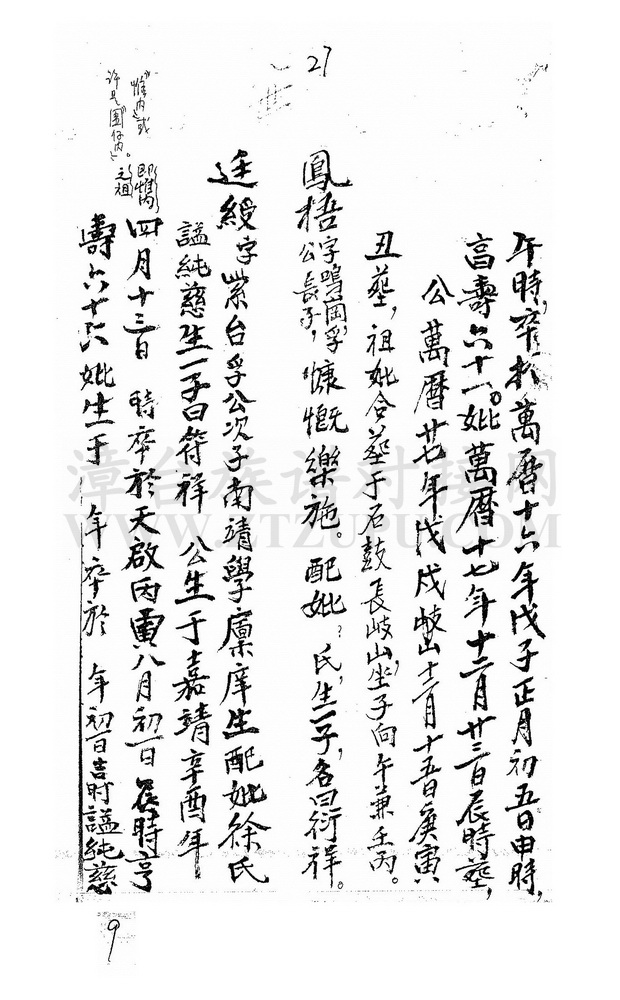 27
午時，卒於萬曆十六年戊子正月初五日申時，
享壽六十一。妣萬曆十七年十二月廿三日辰時塟，
公萬曆廿七年戊戌歧山十二月十五日庚寅
丑塟，祖妣合塟于石鼓長岐山，坐子向午兼壬丙。
鳳梧字鳴崗，孚公長子，慷慨樂施。配妣？氏，生一子，名曰衍祥。
廷綬字紫台孚公次子南靖學廩庠生配妣徐氏
謚純慈生一子曰符祥 公生于嘉靖辛酉年
四月十三日 時卒於天啟丙寅八月初一日辰時亨
壽六十六妣生于 年卒於 年初一日吉時謚純慈
即惟内
元祖
"惟内"或
许是"園仔内"。
漳台族谱对接网
WWW.ZTZUPU.COM
9